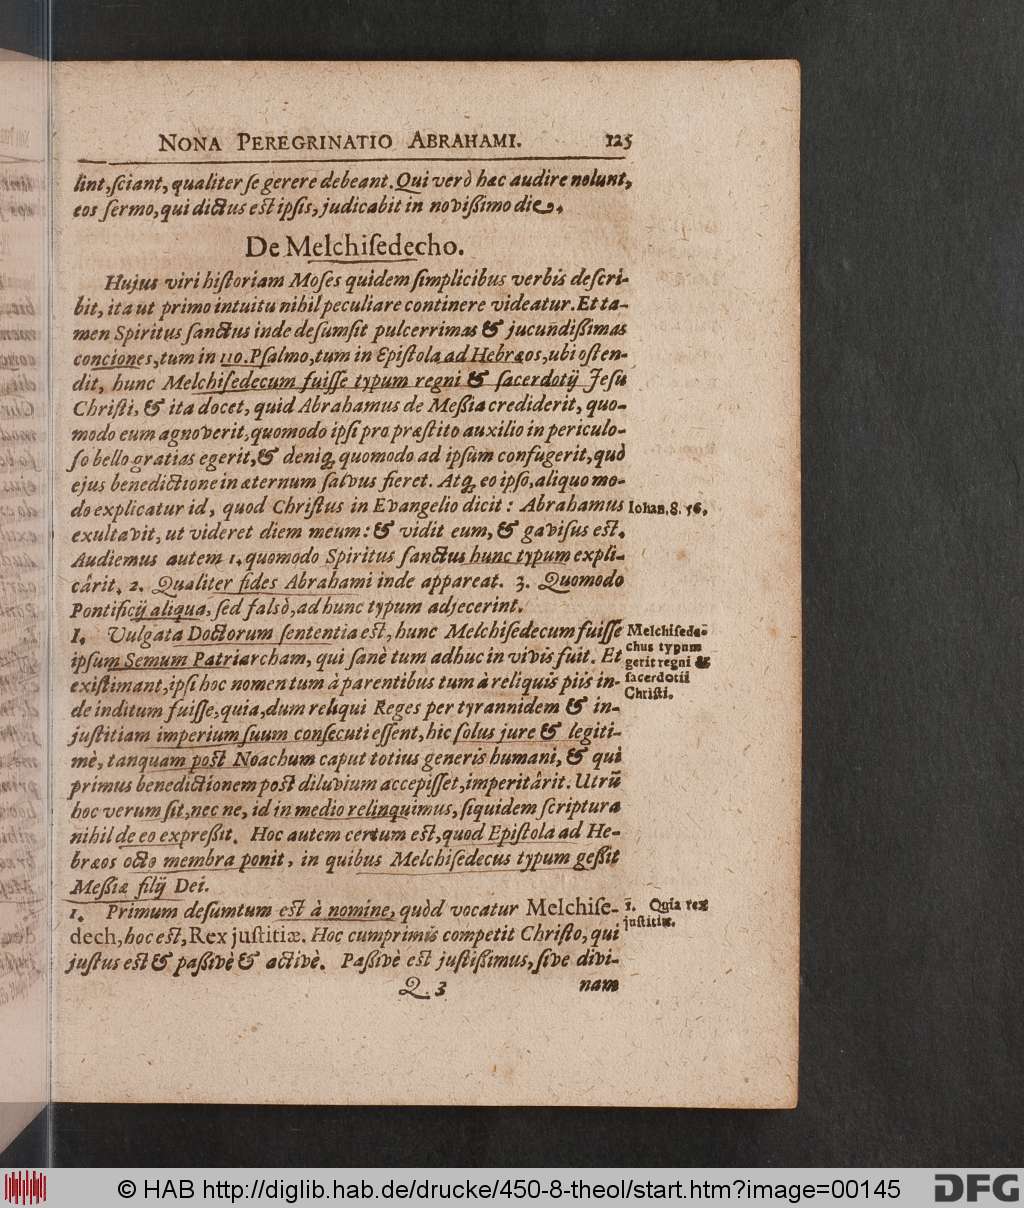 NONA PEREGRINATIO ABRAHAMI. 125
lint, ſciant, qualiter ſe gerere debeant. Qui verò hac audire nolunt,
eos ſermo, qui dictus eſt ipſis, judicabit in noviſſimo die.
De Melchiſedecho.
Hujus viri hiſtoriam Moſes quidem ſimplicibus verbis deſcri-
bit, ita ut primo intuitu nihil peculiare continere videatur. Et ta-
men Spiritus ſanctus inde deſumſit pulcerrimas & jucundiſſimas
conciones, tum in 110. Pſalmo, tum in Epiſtola ad Hebræos, ubi oſten-
dit, hunc Melchiſedecum fuiſſe typum regni & ſacerdotij Jeſu
Chriſti, & ita docet, quid Abrahamus de Meßia crediderit, quo-
modo eum agnoverit, quomodo ipſi pro præſtito auxilio in periculo-
ſo bello gratias egerit, & deniq; quomodo ad ipſum confugerit, quò
ejus benedictione in æternum ſalvus fieret. Atq; eo ipſo, aliquo mo-
do explicatur id, quod Chriſtus in Evangelio dicit: Abrahamus
exultavit, ut videret diem meum: & vidit eum, & gaviſus eſt.
Audiemus autem 1. quomodo Spiritus ſanctus hunc typum expli-
cârit. 2. Qualiter fides Abrahami inde appareat. 3. Quomodo
Pontificij aliqua, ſed falsò, ad hunc typum adjecerint.
Iohan. 8. 56.
I. Vulgata Doctorum ſententia eſt, hunc Melchiſedecum fuiſſe
ipſum Semum Patriarcham, qui ſanè tum adhuc in vivis fuit. Et
exiſtimant, ipſi hoc nomen tum à parentibus tum à reliquis piis in-
de inditum fuiſſe, quia, dum reliqui Reges per tyrannidem & in-
juſtitiam imperium ſuum conſecuti eſſent, hic ſolus jure & legiti-
mè, tanquam poſt Noachum caput totius generis humani, & qui
primus benedictionem poſt diluvium accepiſſet, imperitârit. Utrũ
hoc verum ſit, nec ne, id in medio relinquimus, ſiquidem ſcriptura
nihil de eo expreßit. Hoc autem certum eſt, quod Epiſtola ad He-
bræos octo membra ponit, in quibus Melchiſedecus typum geßit
Meßiæ filij Dei.
Melchiſede-
chus typum
gerit regni &
ſacerdotii
Chriſti.
1. Primum deſumtum eſt à nomine, quòd vocatur Melchiſe-
dech, hoc eſt, Rex juſtitiæ. Hoc cumprimis competit Chriſto, qui
juſtus eſt & paßivè & activè. Paßivè eſt juſtißimus, ſive divi-
1. Quia rex
juſtitiæ.
Q 3 nam
© HAB http://diglib.hab.de/drucke/450-8-theol/start.htm?image=00145
DFG